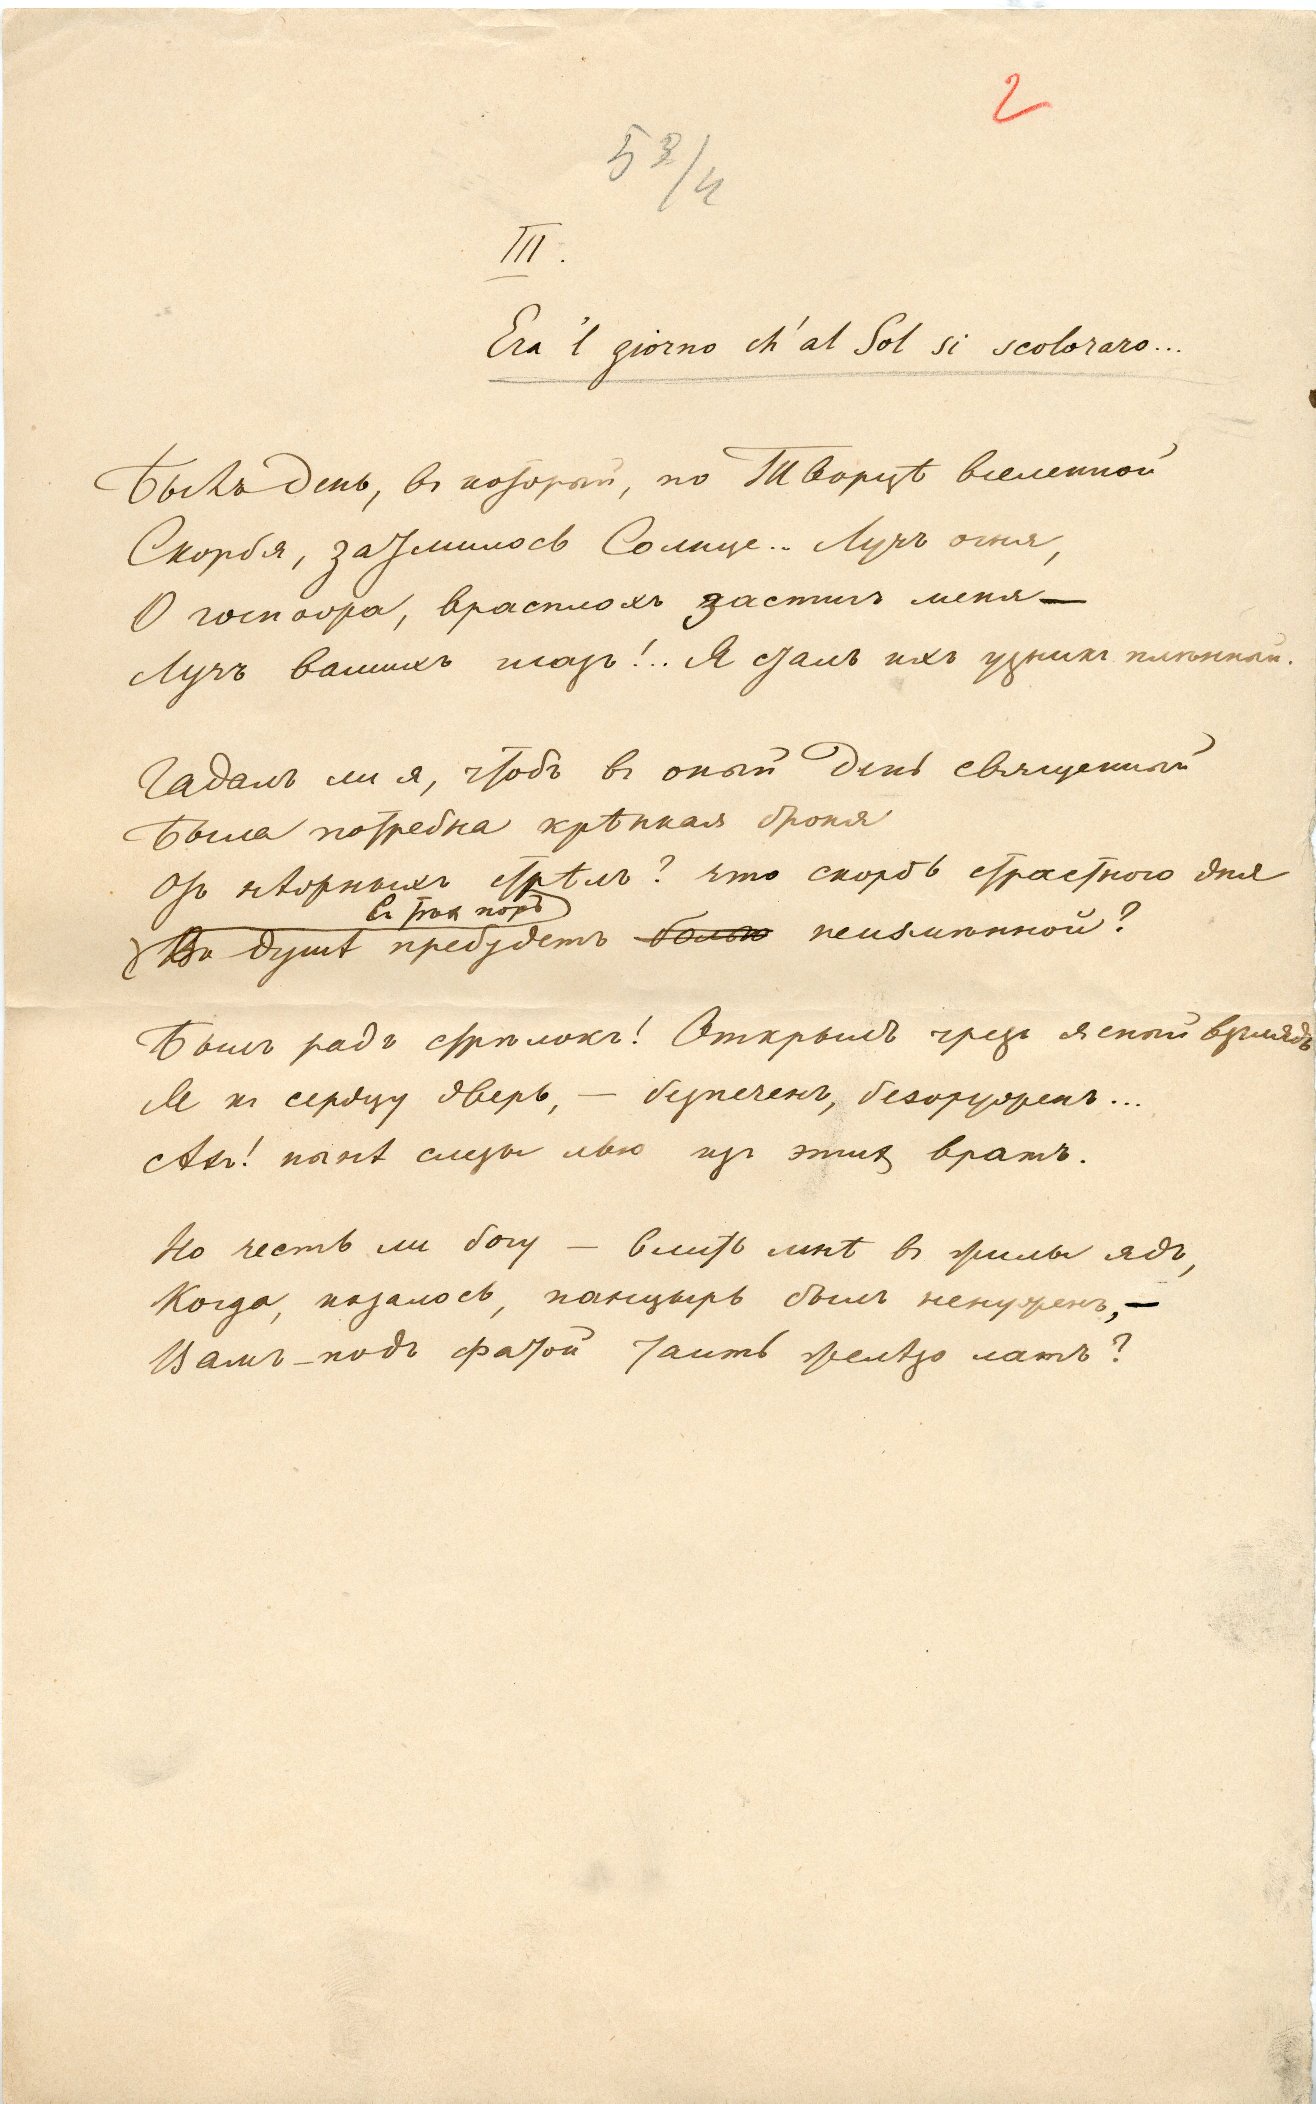 2
5 3/4
III.
Era 'l giorno ch' al Sol si scoloraro...
Былъ день, въ который, по Творцѣ вселенной
Скорбя, затмилось Солнце.. Лучъ огня,
О госпожа, врасплохъ засталъ меня —
Лучъ вашихъ глазъ!.. Я сталъ ихъ узникъ плѣнный.
Гадалъ ли я, чтобъ въ оный день священный
Была потребна крѣпкая броня
Отъ нѣжныхъ стрѣлъ? что скорбь страстного дня
Съ тѣхъ поръ
Въ душѣ пребудетъ болью неизмѣнной?
Былъ радъ стрѣлокъ! Открылъ чрезъ ясный взглядъ
Я къ сердцу дверь, — безпеченъ, безоруженъ...
Ахъ! нынѣ слезы лью изъ этихъ вратъ.
Но честь ли богу — влить мнѣ въ жилы ядъ,
Когда, казалось, панцырь былъ ненуженъ, —
Вамъ — подъ фатой таить желѣзо латъ?